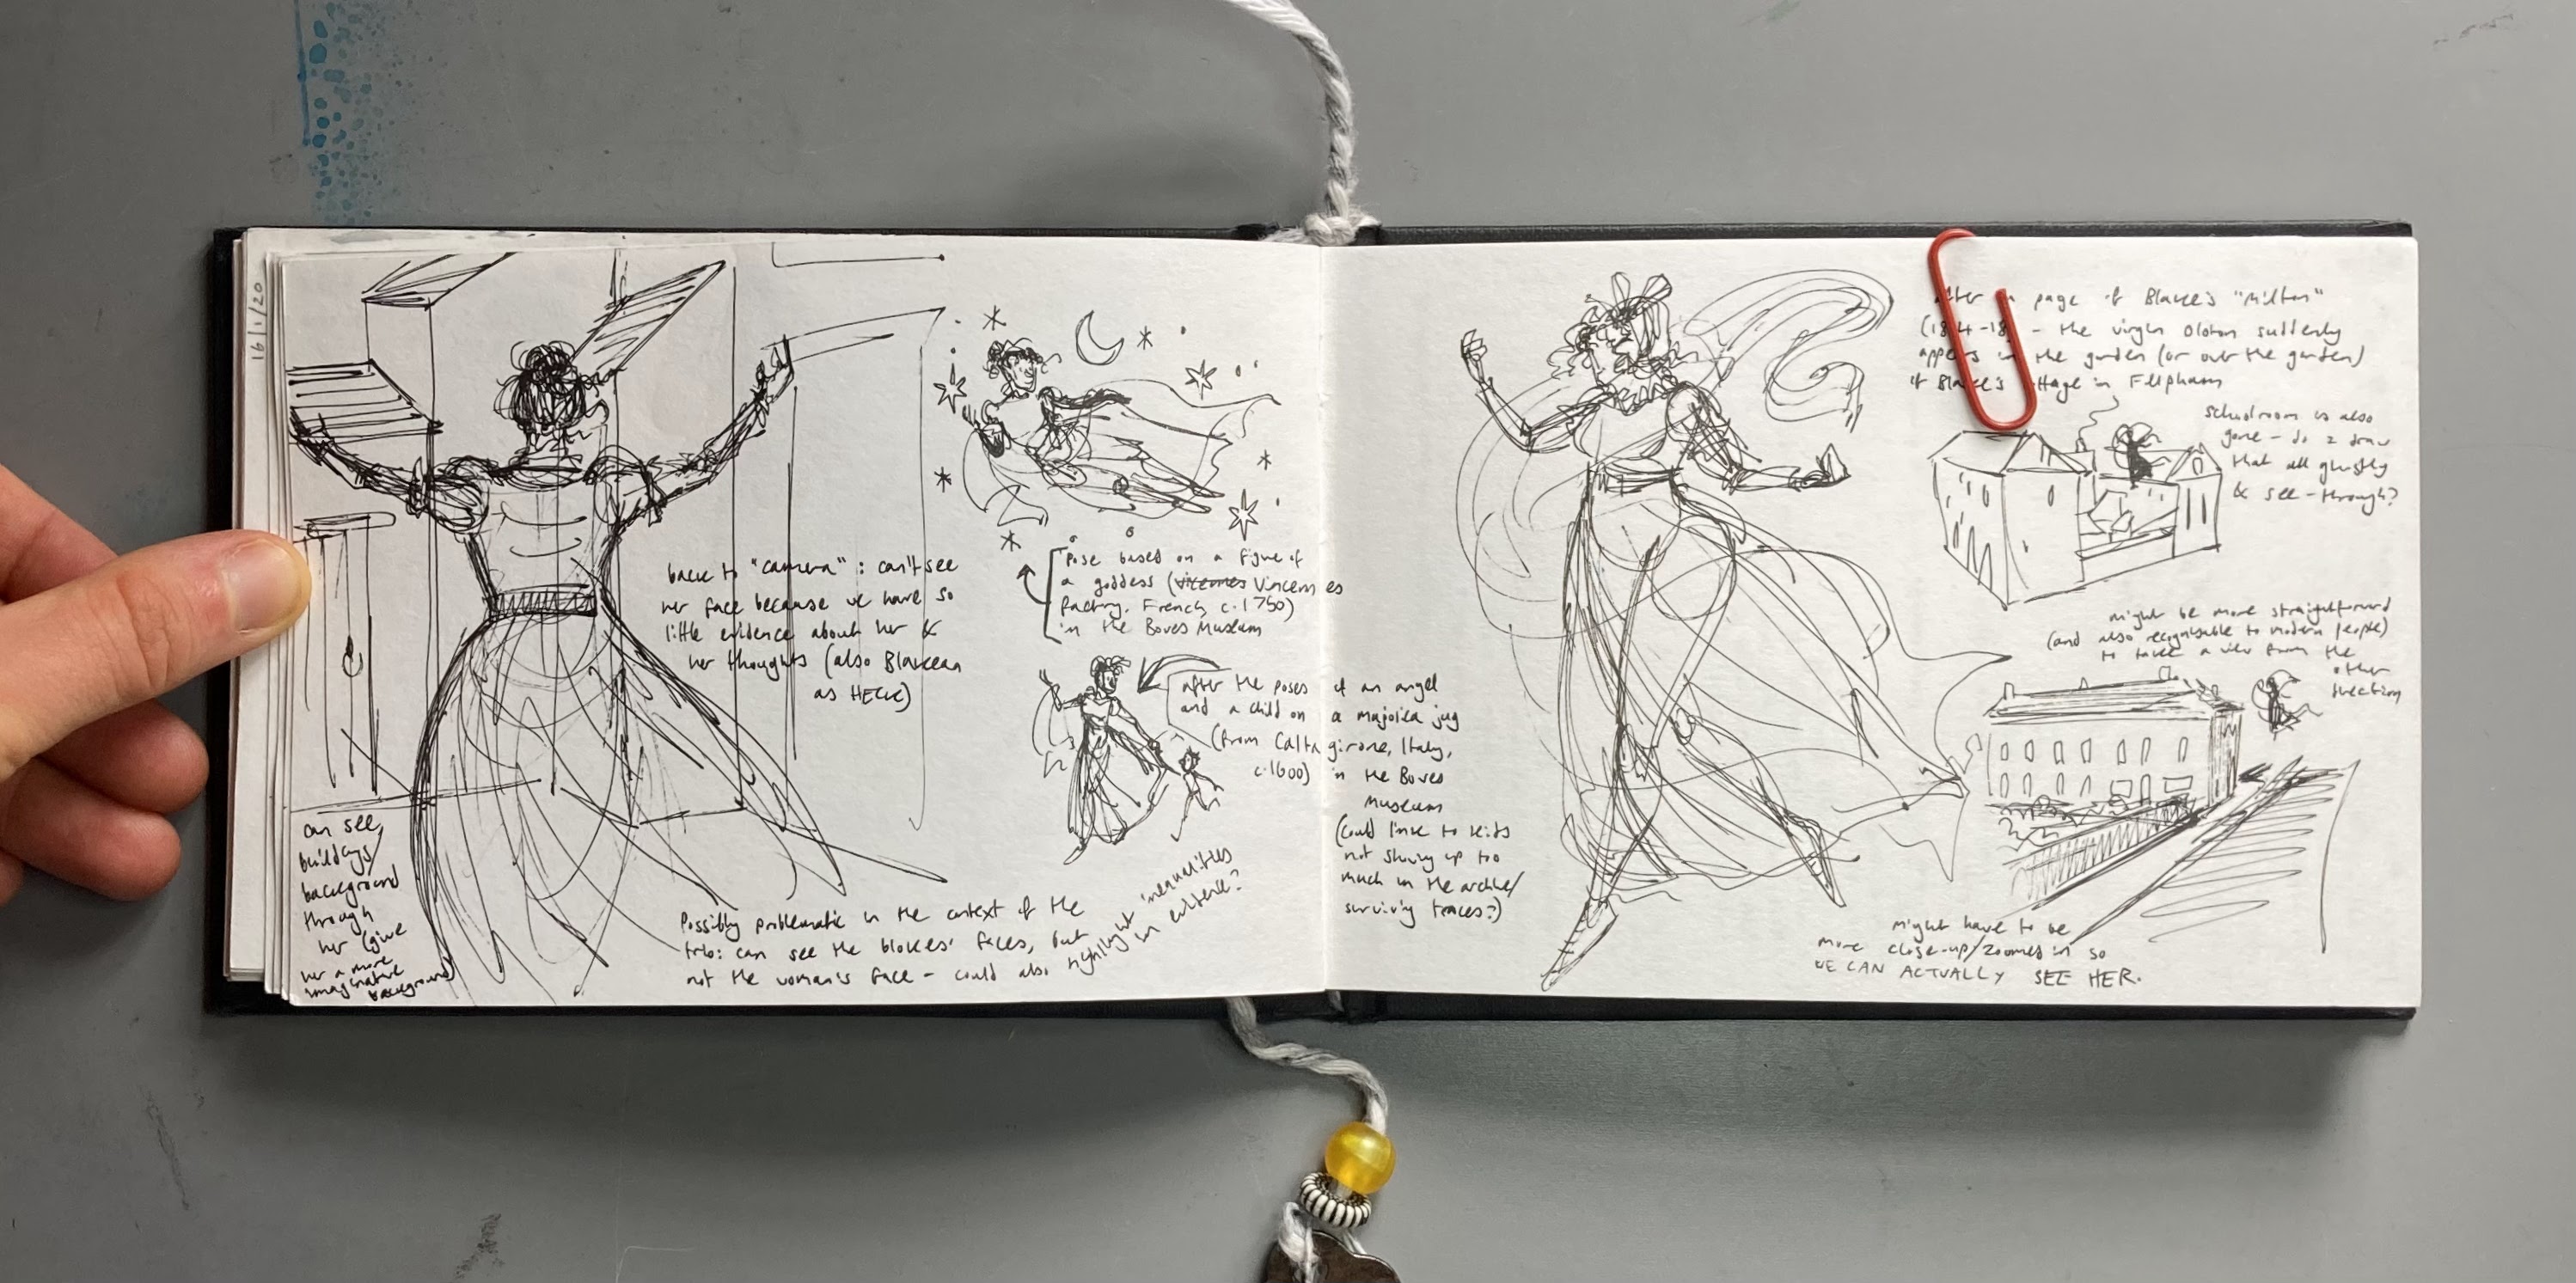 16/1/20
back to "camera": can't see
her face because we have so
little evidence about her &
her thoughts (also Blakean
as HECK)
can see
buildings/
background
through
her (give
her a more
imaginative
background)
Possibly problematic in the context of the
trio: can see the blokes' faces, but
not the woman's face - could also highlight inequalities
in evidence?
Pose based on a figure of
a goddess (Vincennes
factory, French c.1750)
in the Bowes Museum
after the poses of an angel
and a child on a majolica jug
(from Caltagirone, Italy,
c.1600) in the Bowes
Museum
(could link to kids
not showing up too
much in the archive/
surviving traces?)
after a page of Blake's "Milton"
- the virgin Ololon suddenly
appears in the garden (or over the garden)
of Blake's cottage in Felpham
schoolroom is also
gone - do I draw
that all ghostly
& see-through?
might be more straightforward
(and also recognisable to modern people)
to take a view from the
other
direction
might have to be
more close-up/zoomed in so
WE CAN ACTUALLY SEE HER.